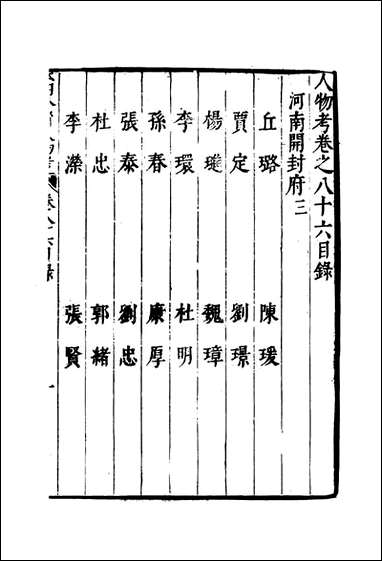 人物考卷之八十六目錄
河南開封府三
丘璐 陳瑗
賈定 劉璟
楊璡 魏璋
李環 杜明
孫春 康厚
張泰 劉忠
杜忠 郭緒
李濼 張賢
卷八十六目錄 一